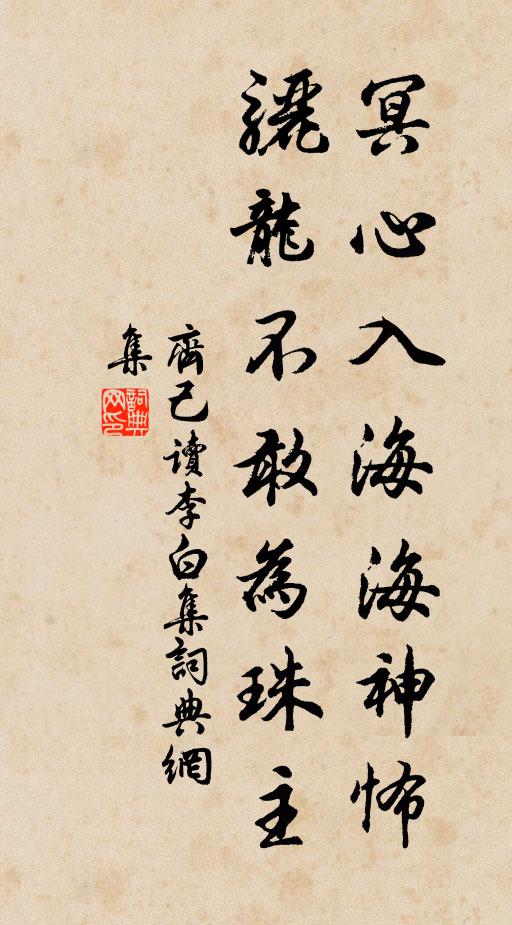 冥心入海海神怖
驪龍不敢為珠主
齊己讀李白集詞典網
集
詞典
网印